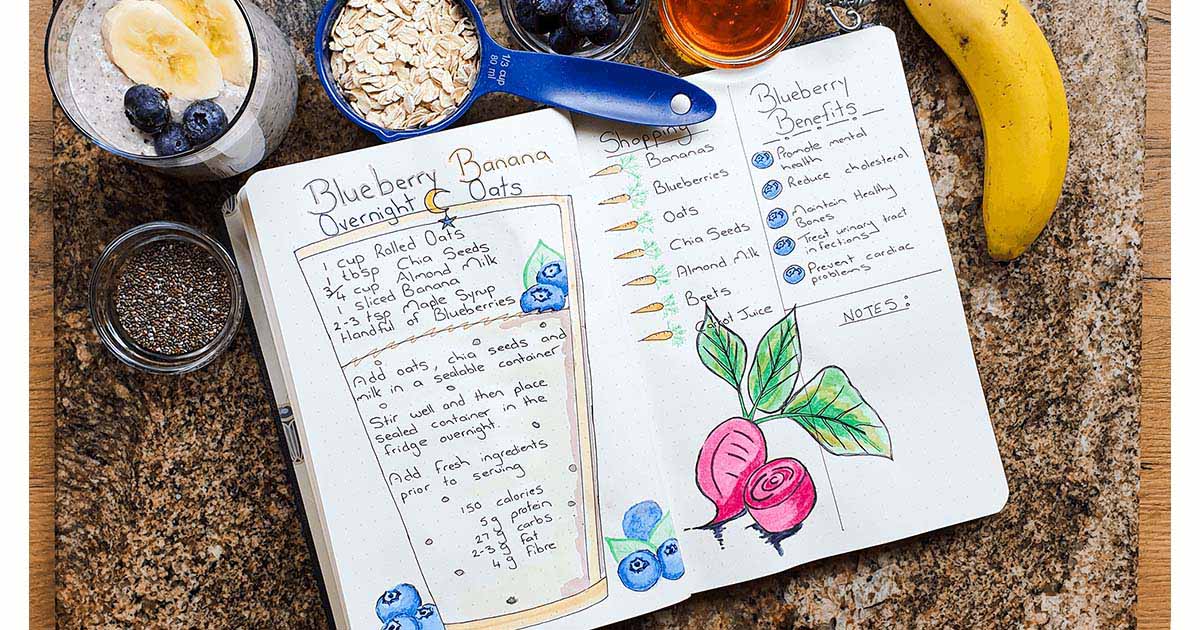 1/3 cup
80 ml
Blueberry Banana
Overnight Oats
1 cup Rolled Oats
1 tbsp Chia Seeds
3/4 cup Almond Milk
1 sliced Banana
2-3 tsp Maple Syrup
Handful of Blueberries
Add oats, chia seeds and
milk in a sealable container
Stir well and then place
sealed container in the
fridge overnight.
Add fresh ingredients
prior to serving
150 calories
5g protein
27g carbs
2-3 g fat
4g fibre
Shopping
Bananas
Blueberries
Oats
Chia Seeds
Almond Milk
Beets
Carrot Juice
Blueberry
Benefits
Promote mental
health
Reduce cholesterol
Maintain Healthy
Bones
Treat urinary tract
infections
Prevent cardiac
problems
NOTES: